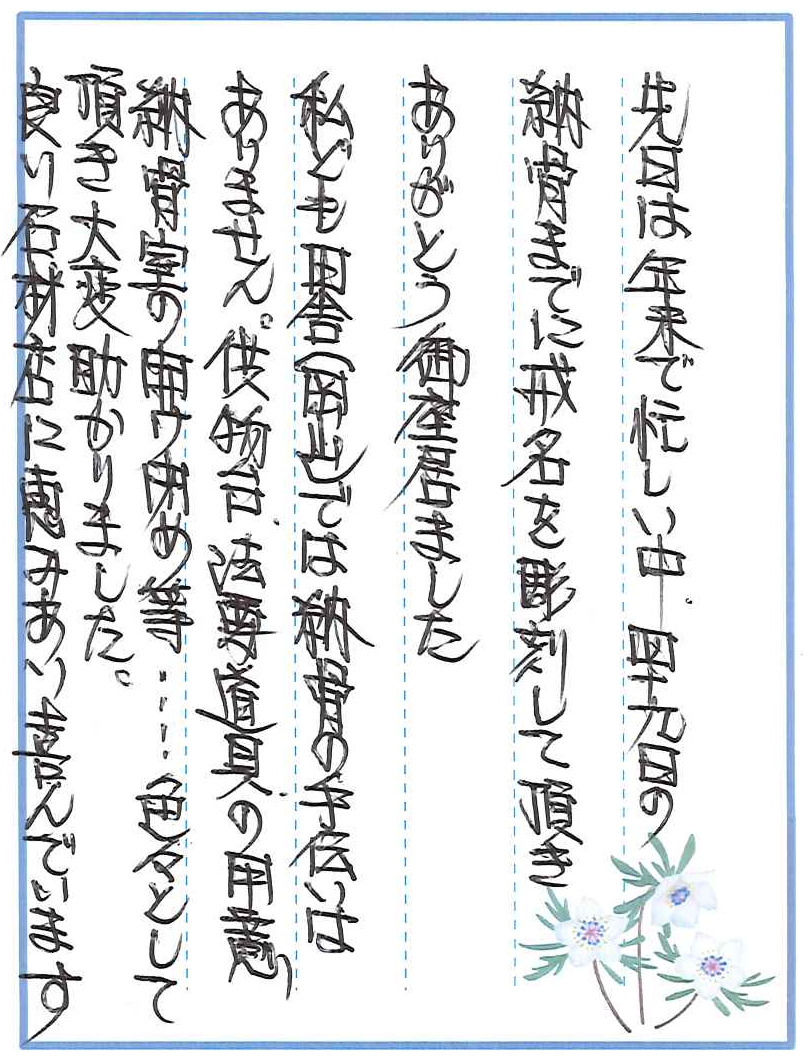 先日は年末で忙しい中 四十九日の
納骨までに戒名を彫刻して頂き
ありがとう御座居ました
私ども田舎(岡山)では納骨の手伝いは
ありません。供物台、法要道具の用意、
納骨室の開け閉め等……色々として
頂き大変助かりました。
良い石材店に恵みあい喜んでいます